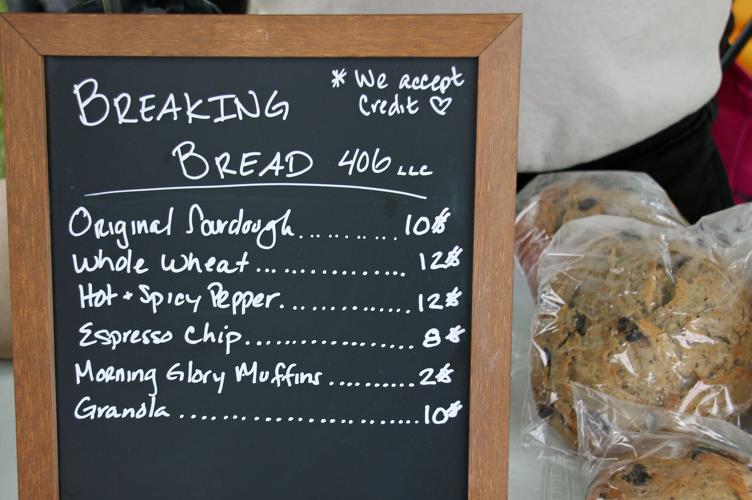 BREAKING
BREAD 406 LLC
* We accept
Credit ♡
Original Sourdough.......... 10$
Whole Wheat.............. 12$
Hot + Spicy Pepper............. 12$
Espresso Chip................. 8$
Morning Glory Muffins......... 2$
Granola ........................ 10$